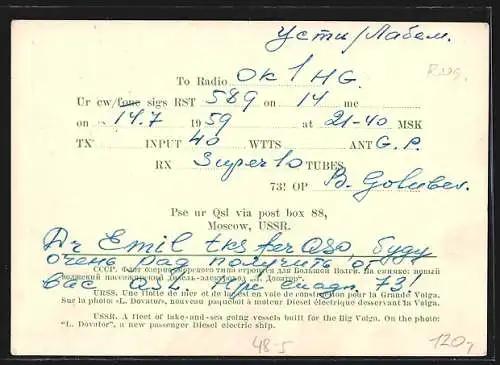 Усти/Лабем.
To Radio OK1HG.
Ur cw/fone sigs RST 589 on 14 mc
on 14.7 1959 at 21-40 MSK
TX INPUT 40 WTTS ANT G.P.
RX Super 10 TUBES
73! OP B. Golubev.
Pse ur Qsl via post box 88,
Moscow, USSR.
Dr Emil tks fer QSO, буду
очень рад получить от
Вас QSL. 73!
СССР. Флот озерно-морского типа строится для Большой Волги. На снимке: новый
волжский пассажирский дизель-электроход „Л. Доватор".
URSS. Une flotte de mer et de lac est en voie de construction pour la Grande Volga.
Sur la photo: «L. Dovator», nouveau paquebot à moteur Diesel électrique desservant la Volga.
USSR. A fleet of lake-and-sea going vessels built for the Big Volga. On the photo:
"L. Dovator", a new passenger Diesel electric ship.
48-5
120,